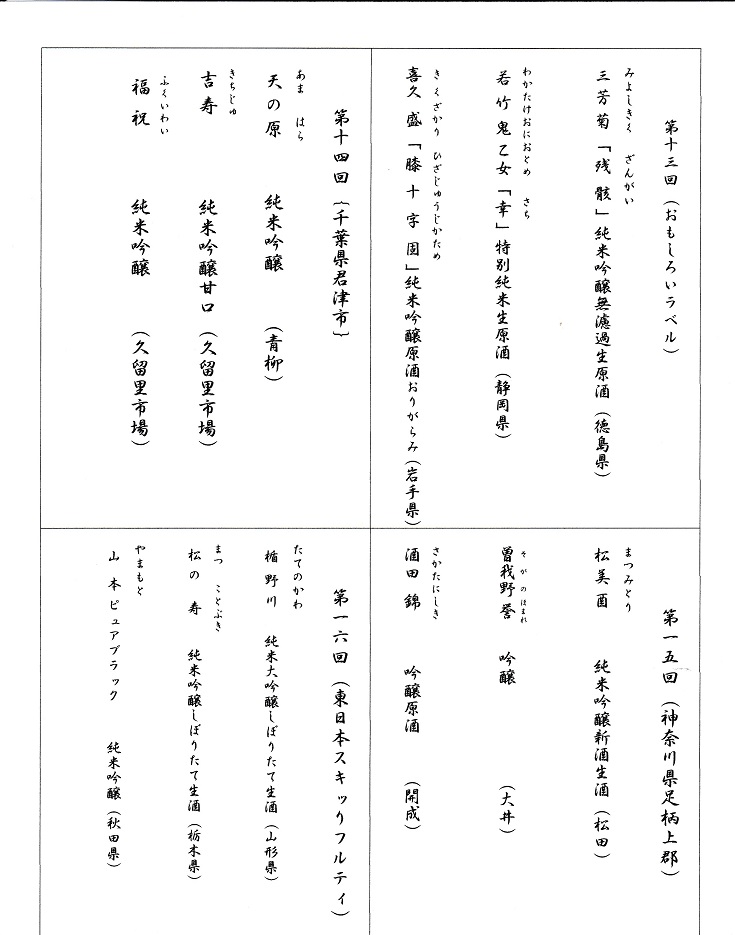 第十三回（おもしろいラベル）
みよしきく　ざんがい
三芳菊「残骸」純米吟醸無濾過生原酒（徳島県）
わかたけおにおとめ　さち
若竹鬼乙女「幸」特別純米生原酒（静岡県）
きくざかり　ひざじゅうじかため
喜久盛「膝十字固」純米吟醸原酒おりがらみ（岩手県）
第十四回〔千葉県君津市〕
あま　はら
天の原　純米吟醸　（青柳）
きちじゅ
吉寿　純米吟醸甘口（久留里市場）
ふくいわい
福祝　純米吟醸　（久留里市場）
第一五回（神奈川県足柄上郡）
まつみとり
松美酉　純米吟醸新酒生酒（松田）
そがのほまれ
曽我野誉　吟醸　（大井）
さかたにしき
酒田錦　吟醸原酒　（開成）
第一六回（東日本スキッりフルティ）
たてのかわ
楯野川　純米大吟醸しぼりたて生酒（山形県）
まつ　ことぶき
松の寿　純米吟醸しぼりたて生酒（栃木県）
やまもと
山本ピュアブラック　純米吟醸（秋田県）